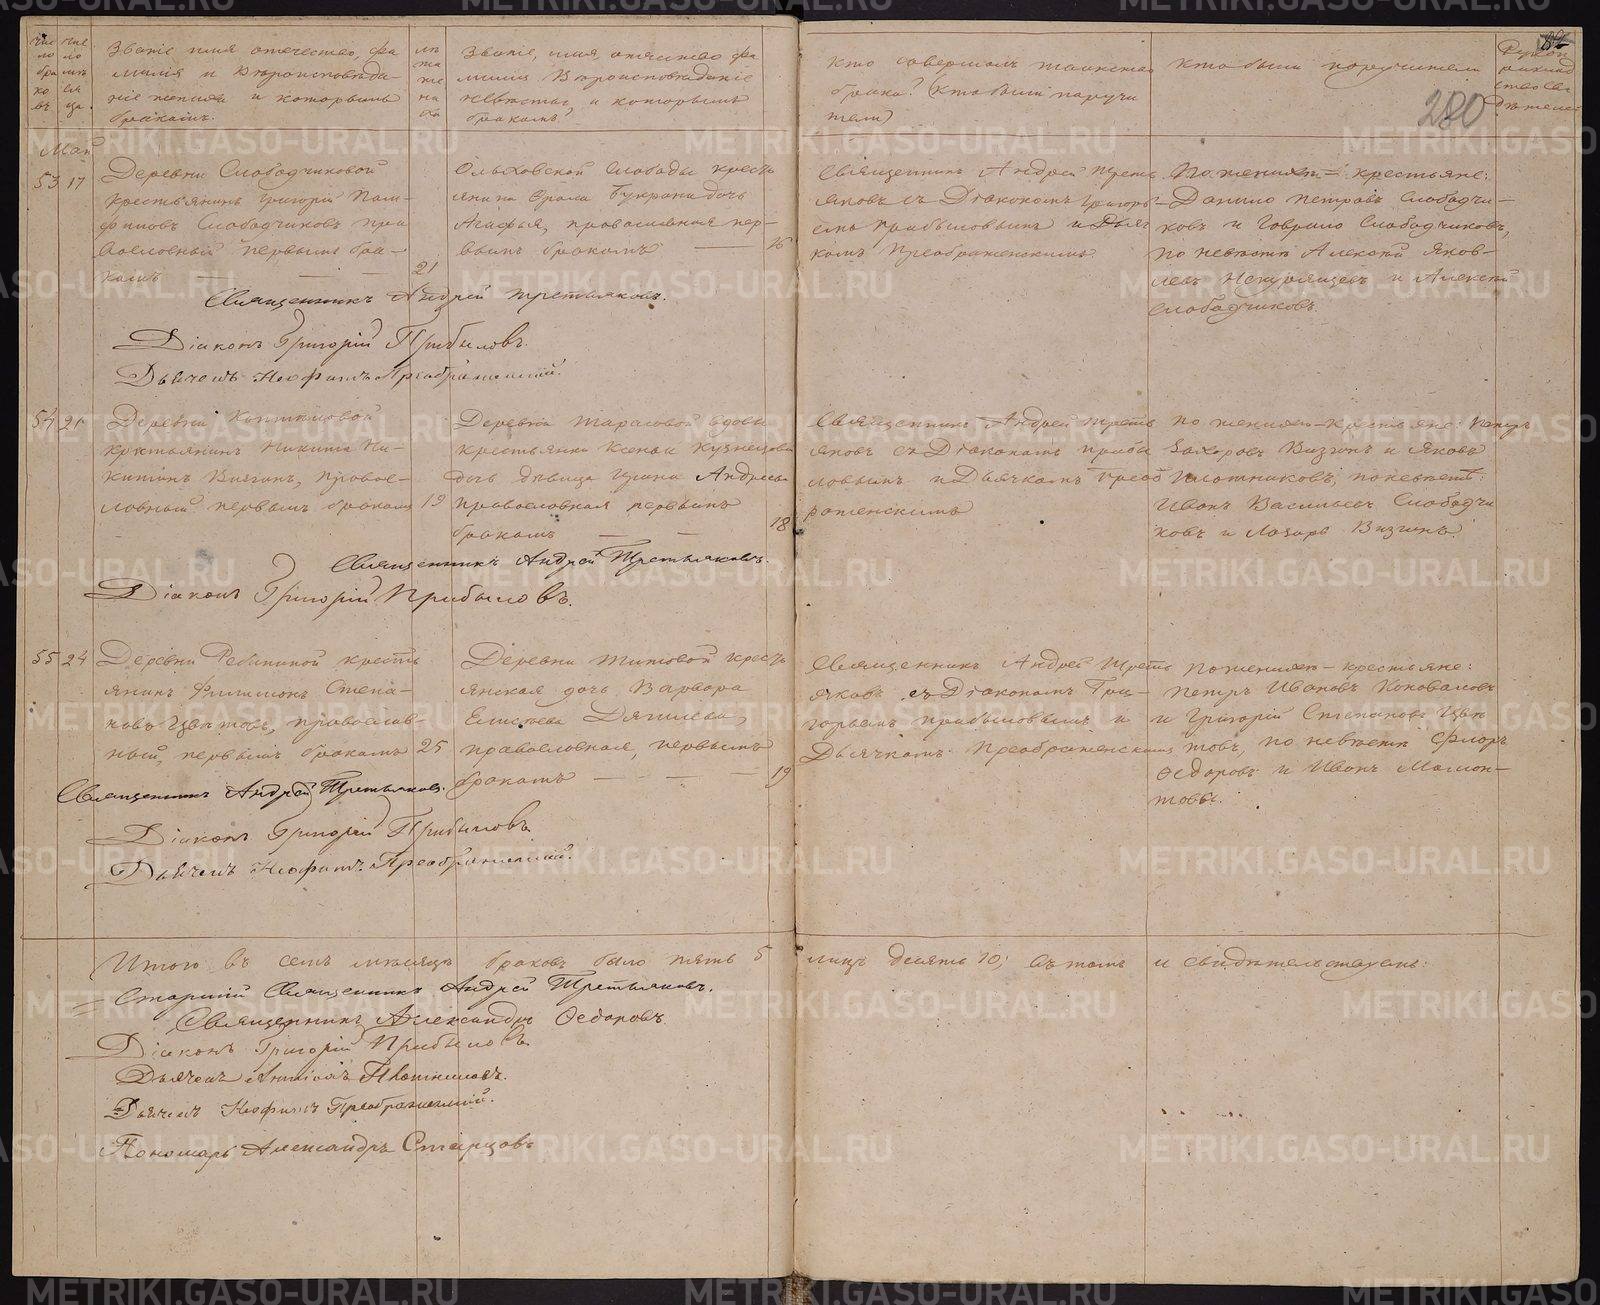 Звание имя отечество, фа
милия и вероисповеда
ние жениха и которымъ
бракомъ.
Звание, имя, отечество фа
милия вероисповедание
невесты, и которымъ
бракомъ
Кто совершалъ таинство
брака? (кто были поручи
тели)
Кто были поручители
280
Май
53 17
Деревни Слободчиковой
крестьянинъ Григорій
Слободчиковъ пра
вославный первымъ бра-
комъ — — —
21
Ольховской Слободы кресть
янина дочь
Агафья, православная пер-
вымъ бракомъ —
16
Священникъ Андрей Треть
яковъ съ Діакономъ Григорь
емъ Прибыловымъ и Дьяч
комъ Преображенскимъ
По женихе крестьяне:
Данило Петровъ Слободчи-
ковъ и Гаврило Слободчиковъ,
по невесте Алексей Яков-
левъ и Алексей
Слободчиковъ.
Священникъ Андрей Третьяковъ.
Діаконъ Григорій Прибыловъ.
Дьячекъ Неофитъ Преображенскій.
54 21
Деревни
крестьянинъ Никита Ни-
китинъ Визгинъ, право-
славный первымъ бракомъ 19
Деревни Тарасовой вдовы
крестьянки Ксеньи Кузнецовой
дочь девица Андреева
православная первымъ
бракомъ — —
18
Священникъ Андрей Треть
яковъ съ Діакономъ Прибы
ловымъ и Дьячкомъ Преоб
раженскимъ
по женихе крестьяне: Петръ
Захаровъ Визгинъ и Яковъ
Плотниковъ, по невесте:
Иванъ Васильевъ Слободчи
ковъ и Лазарь Визгинъ.
Священникъ Андрей Третьяковъ.
Діаконъ Григорій Прибыловъ.
55 24
Деревни Ребининой кресть
янинъ Филимонъ Степа-
новъ Цветовъ, православ-
ный, первымъ бракомъ 25
Деревни Титовой кресть
янская дочь Варвара
Елисеева Дягилева,
православная, первымъ
бракомъ — — —
19
Священникъ Андрей Треть
яковъ съ Діакономъ Гри-
горьемъ Прибыловымъ и
Дьячкомъ Преображенскимъ
по женихе — крестьяне:
Петръ Ивановъ Коноваловъ
и Григорій Степановъ Цве
товъ, по невесте Флоръ
Федоровъ и Иванъ Мамон-
товы.
Священникъ Андрей Третьяковъ.
Діаконъ Григорій Прибыловъ
Дьячекъ Неофитъ Преображенскій.
Итого въ семъ месяце браковъ было пять 5 лицъ десять 10; въ томъ и свидетельствуемъ:
Старшій Священникъ Андрей Третьяковъ.
Священникъ Александръ Федоровъ
Діаконъ Григорій Прибыловъ
Дьячекъ Плотниковъ.
Дьячекъ Неофитъ Преображенскій.
Пономарь Александръ Старцовъ
METRIKI.GASO-URAL.RU